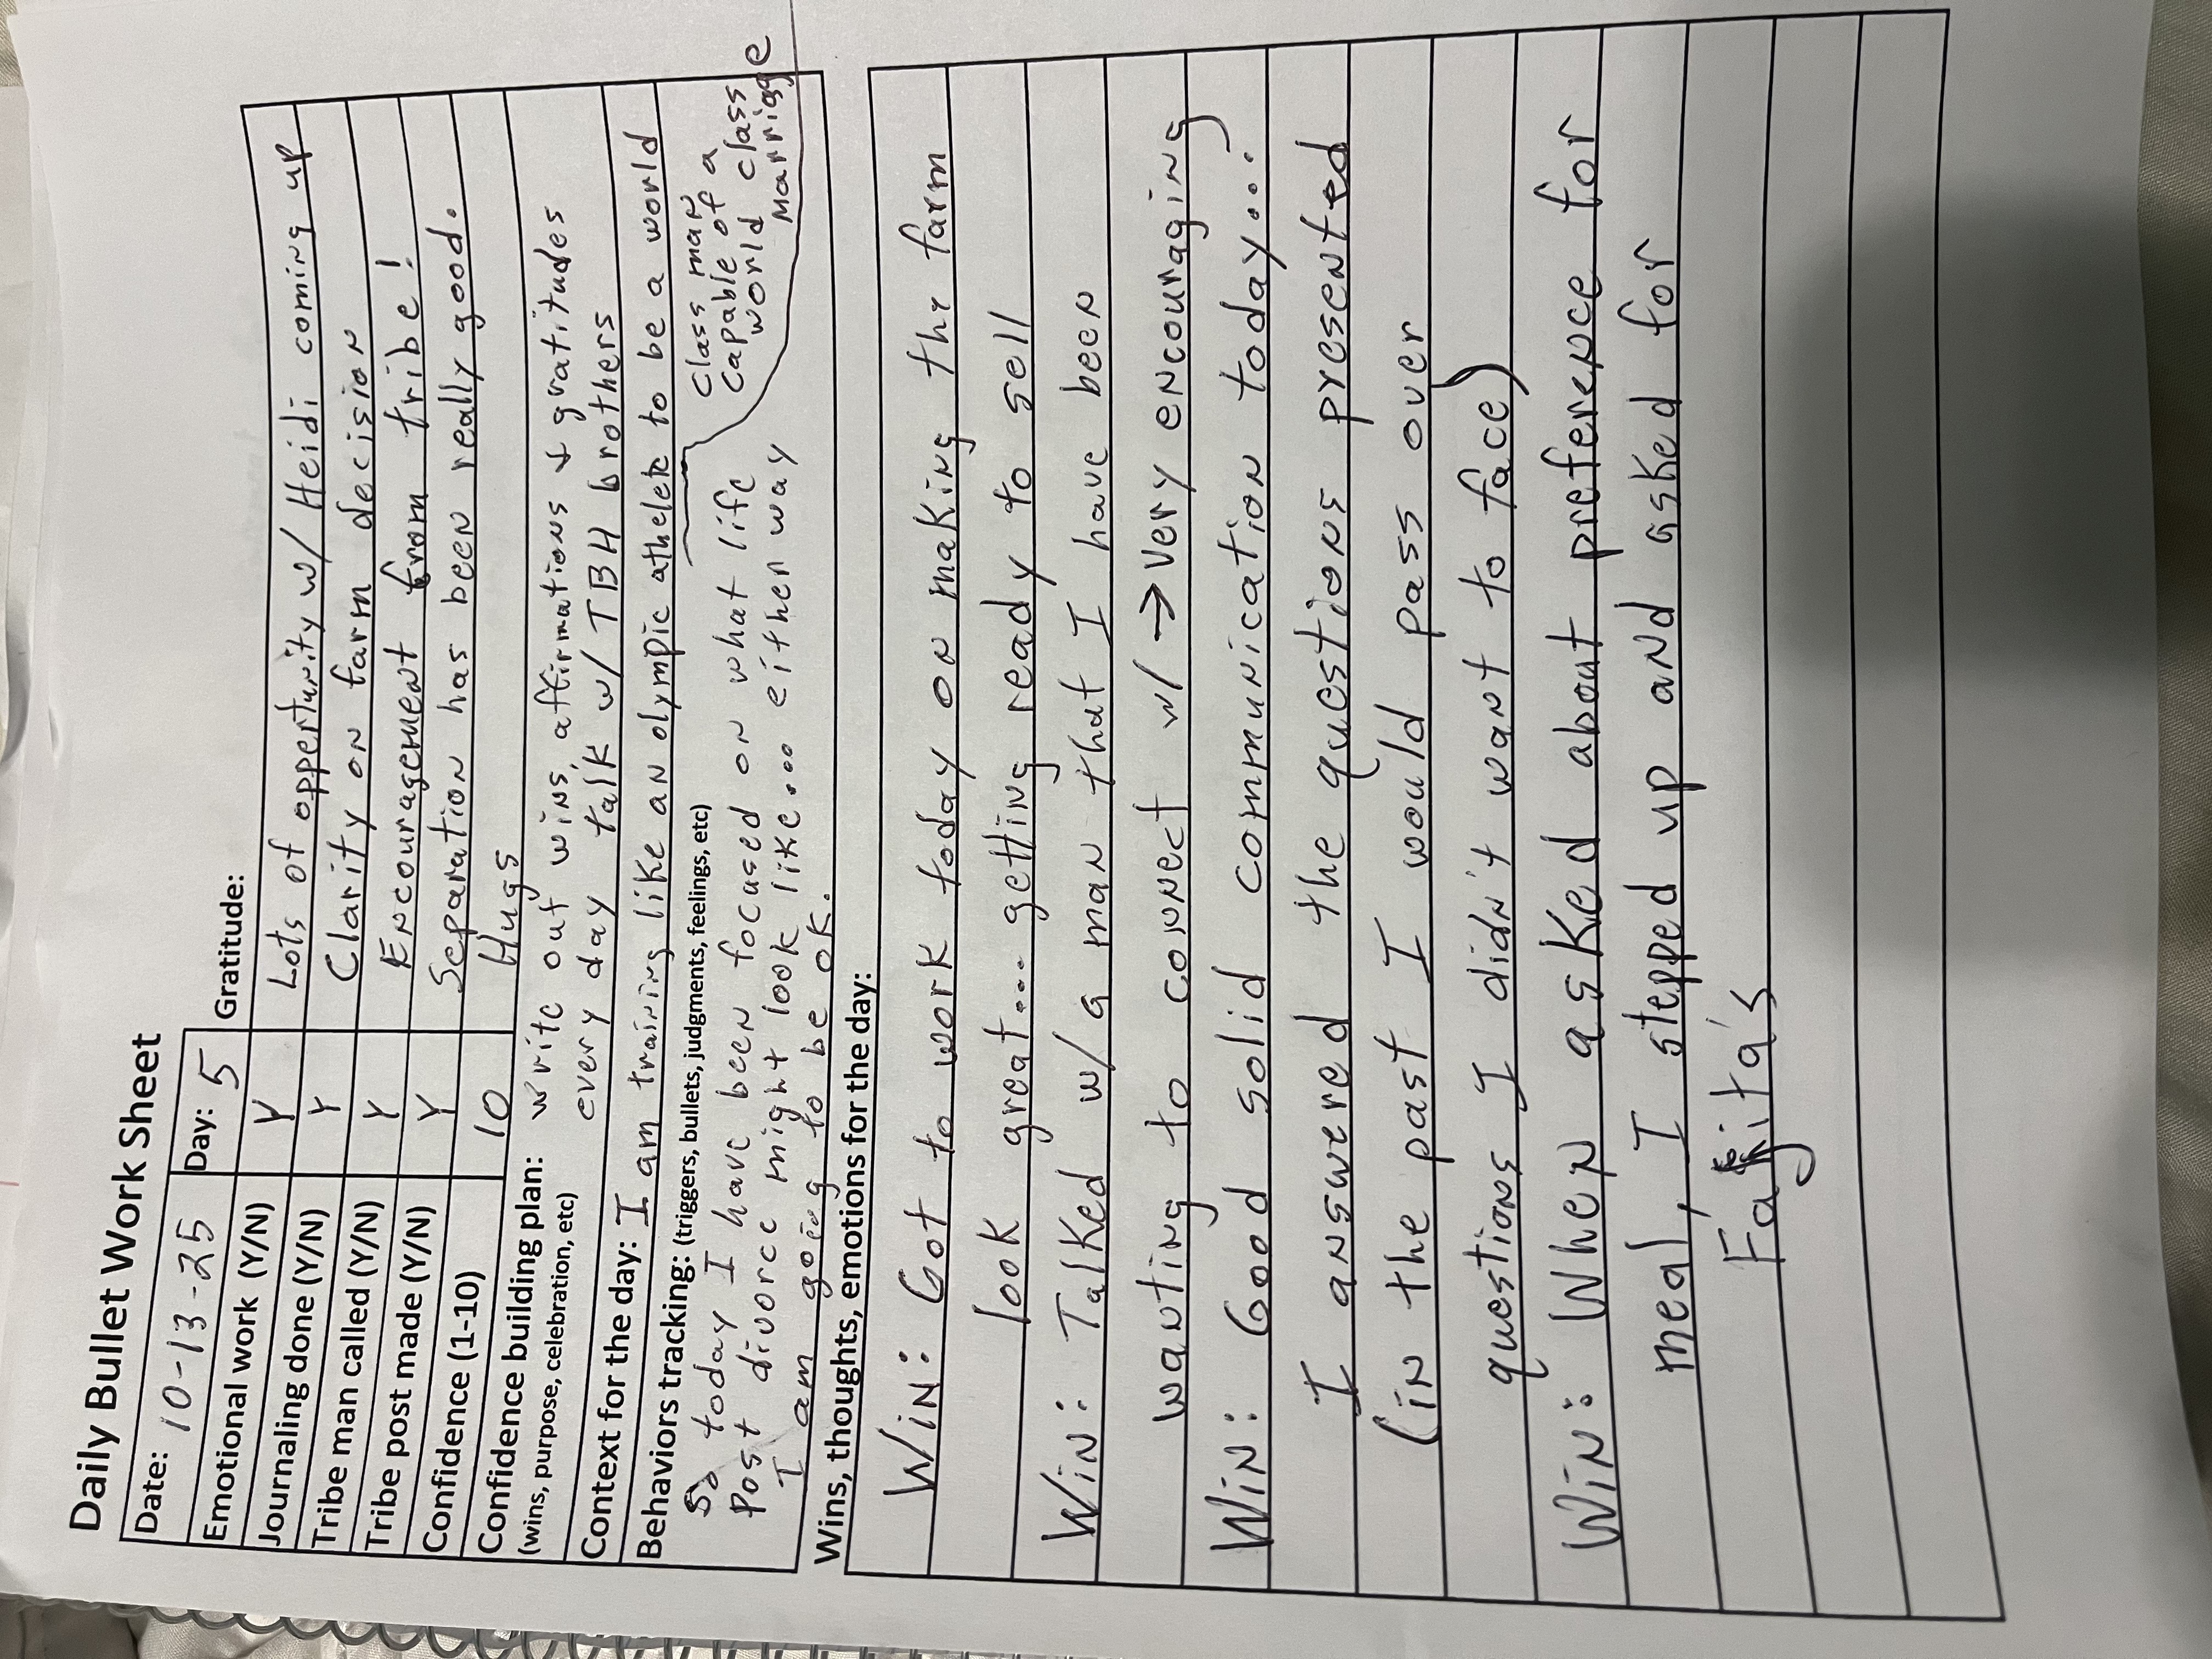 Daily Bullet Work Sheet
Date: 10-13-25 Day: 5 Gratitude:
Emotional work (Y/N) Y Lots of oppertunity w/ Heidi coming up
Journaling done (Y/N) Y Clarity on farm decision
Tribe man called (Y/N) Y Encouragement from tribe!
Tribe post made (Y/N) Y Separation has been really good.
Confidence (1-10) 10 Hugs
Confidence building plan: write out wins, affirmations & gratitudes
(wins, purpose, celebration, etc) every day talk w/ TBH brothers
Context for the day: I am training like an olympic athelete to be a world
class man
capable of a
world class
marriage
Behaviors tracking: (triggers, bullets, judgments, feelings, etc)
So today I have been focused on what life
Post divorce might look like... either way
I am going to be OK.
Wins, thoughts, emotions for the day:
Win: Got to work today on making the farm
look great... getting ready to sell
Win: Talked w/ a man that I have been
wanting to connect w/ → Very encouraging
Win: Good solid communication today...
I answered the questions presented
(in the past I would pass over
questions I didn't want to face)
Win: When asked about preference for
meal, I stepped up and asked for
Fajita's